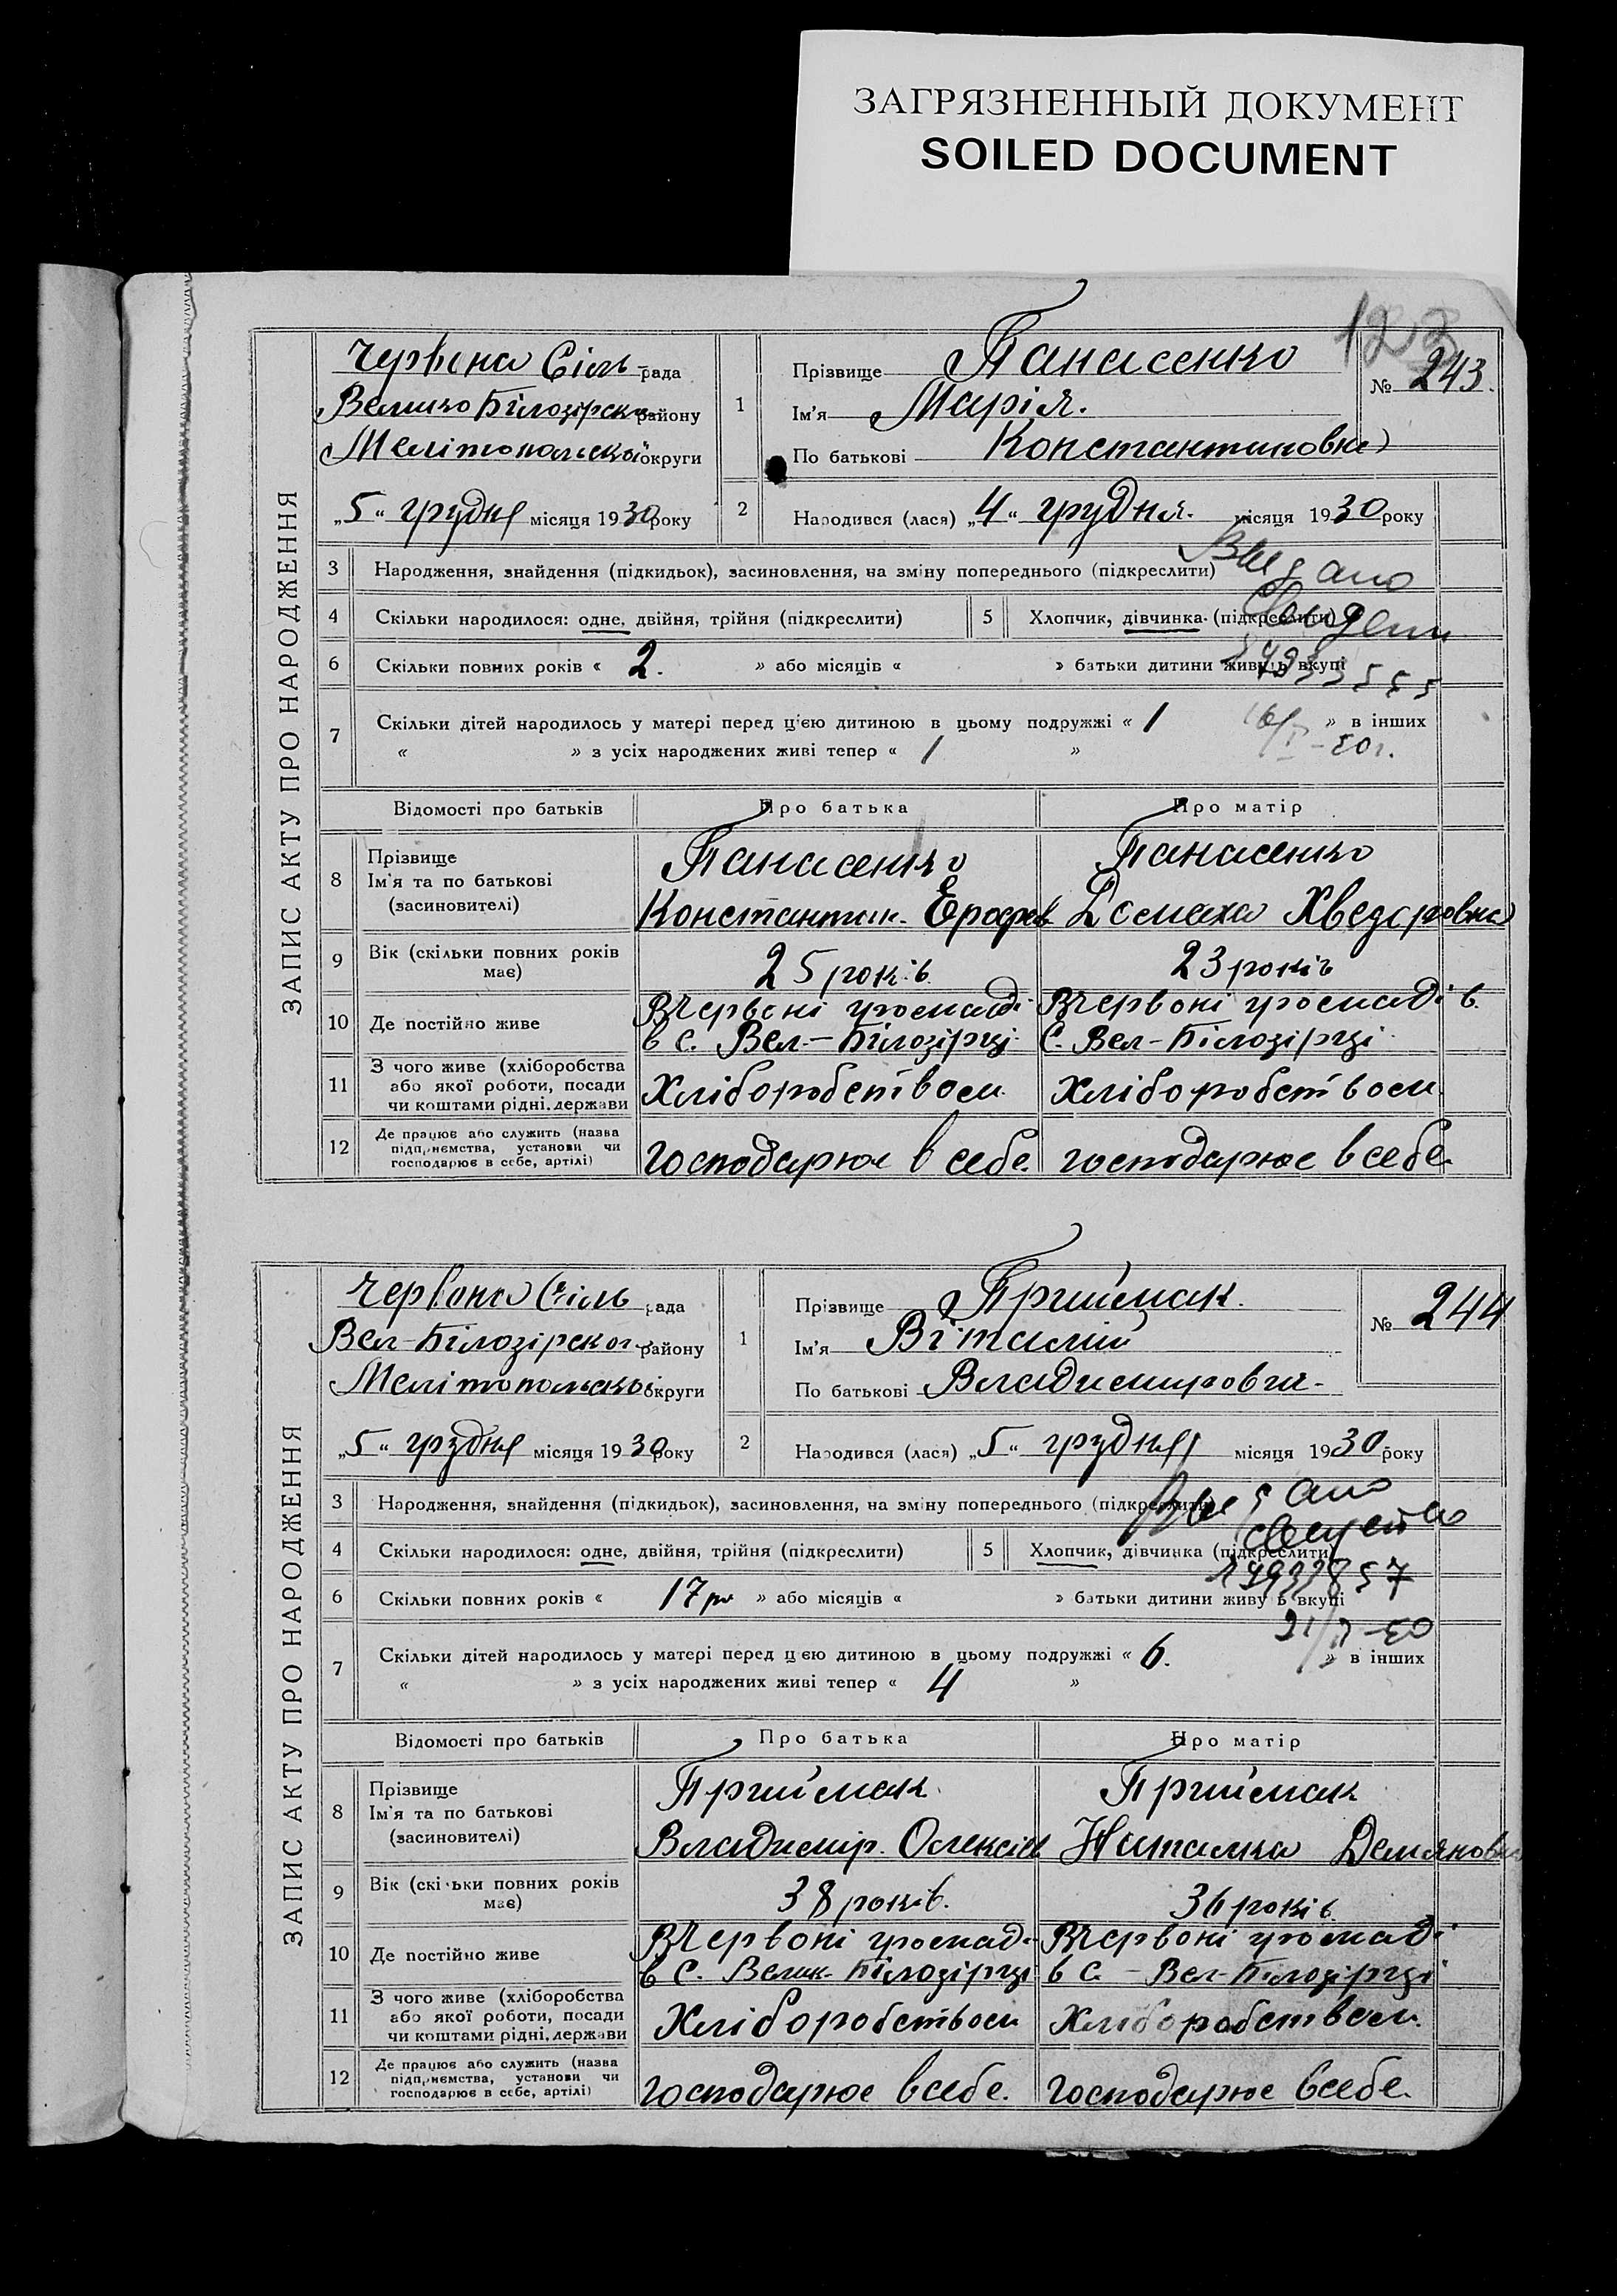 ЗАГРЯЗНЕННЫЙ ДОКУМЕНТ
SOILED DOCUMENT
123
ЗАПИС АКТУ ПРО НАРОДЖЕННЯ
Червона Сіль рада
Велико Білозірськ району
Мелітопольської округи
„5“ грудня місяця 1930 року
1
Прізвище Панасенко
Ім'я Марія.
По батькові Константиновна
№ 243.
2
Народився (лася) „4“ грудня. місяця 1930 року
3 Народження, знайдення (підкидьок), засиновлення, на зміну попереднього (підкреслити)
Выдано
4 Скільки народилося: одне, двійня, трійня (підкреслити)
5 Хлопчик, дівчинка (підкреслити)
6 Скільки повних років « 2. » або місяців « » батьки дитини живуть вкупі
7 Скільки дітей народилось у матері перед цією дитиною в цьому подружжі « 1 » в інших
« » з усіх народжених живі тепер « 1 »
50г.
Відомості про батьків Про батька Про матір
8 Прізвище
Ім'я та по батькові
(засиновителі)
Панасенко
Константин. Ерофев
Панасенко
Домаха Хведоровна
9 Вік (скільки повних років має)
25 років.
23 років
10 Де постійно живе
В Червоні громаді
в с. Вел.-Білозірці
В Червоні громаді в.
С. Вел-Білозірці
11 З чого живе (хліборобства
або якої роботи, посади
чи коштами рідні, держави
Хліборобством.
Хліборобством
12 Де працює або служить (назва
підприємства, установи чи
господарює в себе, артілі)
господарює в себе.
господарює в себе.
ЗАПИС АКТУ ПРО НАРОДЖЕННЯ
Червона Сіль рада
Вел-Білозірског району
Мелітопольської округи
„5“ грудня місяця 1930 року
1
Прізвище Приймак.
Ім'я Віталій
По батькові Владимирович-
№ 244
2
Народився (лася) „5“ грудня місяця 1930 року
3 Народження, знайдення (підкидьок), засиновлення, на зміну попереднього (підкреслити)
Выдано
4 Скільки народилося: одне, двійня, трійня (підкреслити)
5 Хлопчик, дівчинка (підкреслити)
6 Скільки повних років « 17 р » або місяців « » батьки дитини живуть вкупі
7 Скільки дітей народилось у матері перед цією дитиною в цьому подружжі « 6. » в інших
« » з усіх народжених живі тепер « 4 »
Відомості про батьків Про батька Про матір
8 Прізвище
Ім'я та по батькові
(засиновителі)
Приймак.
Владимір. Олексієв
Приймак
Наталка Демяновна
9 Вік (скільки повних років має)
38 років.
36 років
10 Де постійно живе
В Червоні громаді
в с. Велик-Білозірці
В Червоні громаді
в с. - Вел-Білозірці
11 З чого живе (хліборобства
або якої роботи, посади
чи коштами рідні, держави
Хліборобством
Хліборобством.
12 Де працює або служить (назва
підприємства, установи чи
господарює в себе, артілі)
господарює в себе.
господарює в себе.